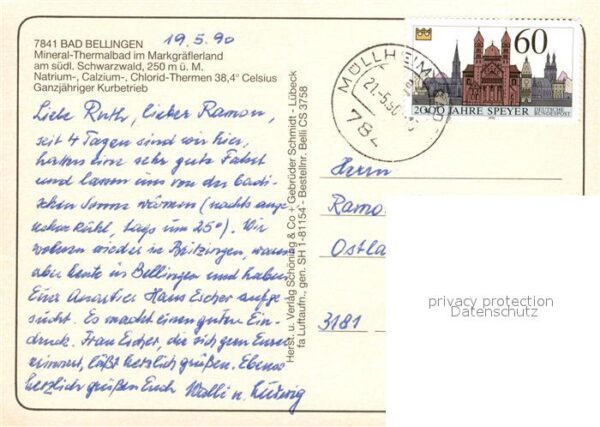 7841 BAD BELLINGEN
Mineral-Thermalbad im Markgräflerland
am südl. Schwarzwald, 250 m ü. M.
Natrium-, Calzium-, Chlorid-Thermen 38,4° Celsius
Ganzjähriger Kurbetrieb
19.5.90
Liebe Ruth, lieber Ramon,
seit 4 Tagen sind wir hier,
hatten eine sehr gute Fahrt
und lassen uns von der badi-
schen Sonne wärmen (nachts ange
nehm kühl, tags um 25°). Wir
wohnen wieder in waren
aber heute in Bellingen und haben
Eure Hans Escher aufge
sucht. Es macht einen guten Ein-
druck. Frau Escher, die sich gern Eurer
erinnert, läßt herzlich grüßen. Ebenso
herzlich grüßen Euch Walli u. Ludwig
Herst. u. Verlag Schöning & Co + Gebrüder Schmidt - Lübeck
fa Luftaufn., gen. SH 1-81154 - Bestellnr. Belli CS 3758
MÜLLHEIM
21.-5.90
784
60
2000 JAHRE SPEYER
DEUTSCHE
BUNDESPOST
Herrn
Ramo
Ostla
3181
privacy protection
Datenschutz